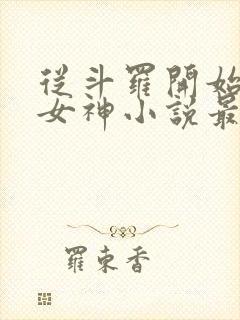 從斗羅開始
女神小說最
羅東香